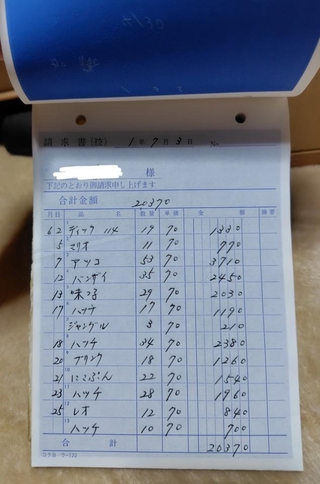 請求書(控) 1年7月3日 No.
様
下記のとおり御請求申し上げます
合計金額 20370
月日 品名 数量 単価 金額 摘要
6 2 ディック 114 19 70 1330
5 ミリオ 11 70 770
7 アツコ 53 70 3710
12 バンザイ 35 70 2450
13 味つる 29 70 2030
17 ハッチ 17 70 1190
ジャングル 3 70 210
18 ハッチ 34 70 2380
20 プリンク 18 70 1260
21 にこぶん 22 70 1540
23 ハッチ 28 70 1960
25 レオ 12 70 840
ハッチ 10 70 700
合計 20370
コクヨ ウ-322